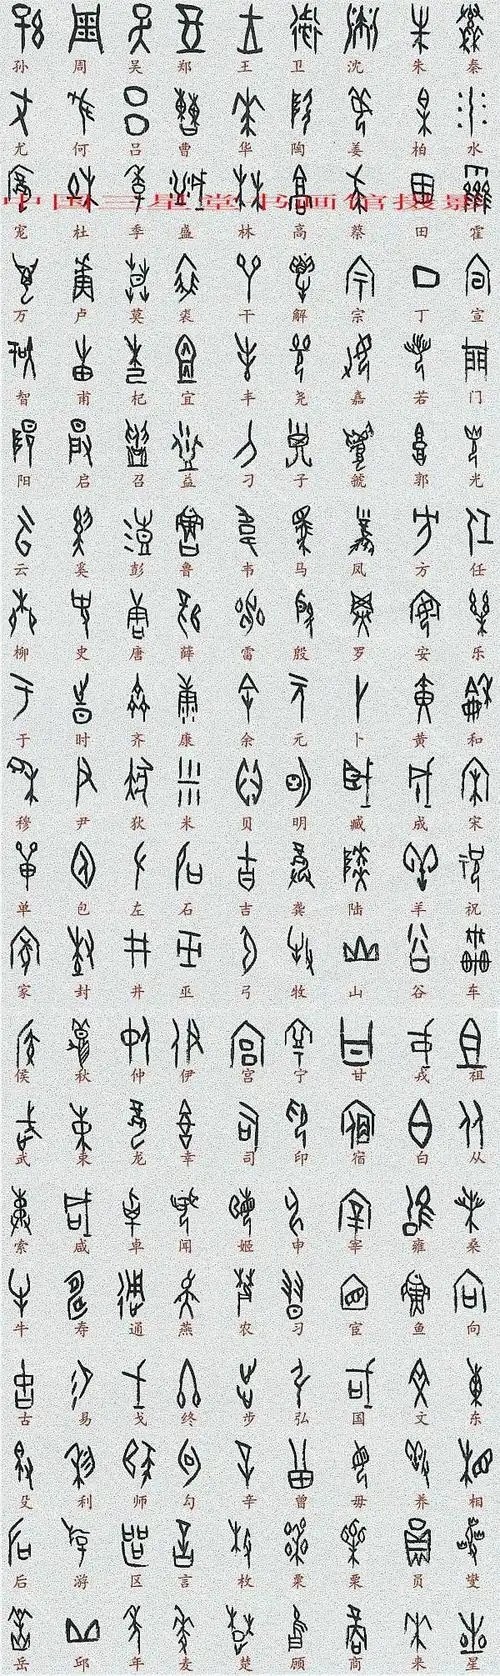 孙 周 吴 郑 王 卫 沈 朱 秦
尤 何 吕 曹 华 陶 姜 柏 水
中国三星堂书画馆摄影
宠 杜 季 盛 林 高 蔡 田 霍
万 卢 莫 裘 干 解 宗 丁 宣
智 甫 杞 宜 丰 尧 嘉 若 门
阳 启 召 益 刁 子 虢 郭 光
云 奚 彭 鲁 韦 马 凤 方 任
柳 史 唐 薛 雷 殷 罗 安 乐
于 时 齐 康 余 元 卜 黄 和
穆 尹 狄 米 贝 明 臧 成 宋
单 包 左 石 吉 龚 陆 羊 祝
家 封 井 巫 弓 牧 山 谷 车
侯 秋 仲 伊 宫 宁 甘 戎 祖
武 束 龙 幸 司 印 宿 白 从
索 咸 卓 闻 姬 申 宰 雍 桑
牛 寿 通 燕 农 习 宦 鱼 向
古 易 戈 终 步 弘 国 文 东
殳 利 师 勾 辛 曾 毋 养 相
后 游 区 言 枚 粟 栗 员 燮
岳 邱 年 麦 楚 顾 商 来 星